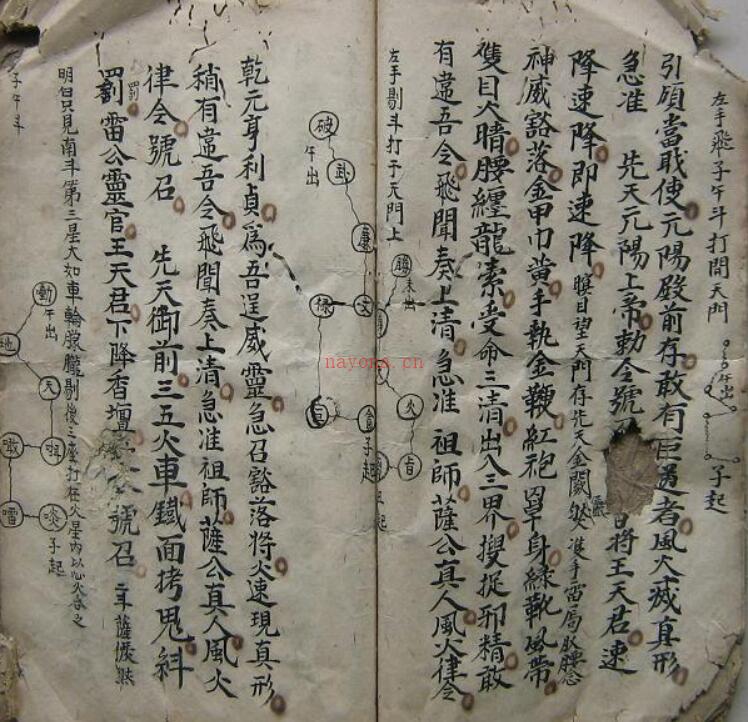 左手飛子午斗打開天門
午出
子起
引頭當戢使元陽殿前存敢有
者風火滅真形
急准 先天元陽上帝勅令號
將王天君速
降速降即速降 瞑目望天門存先天金闕
雙手雷局
腰念
神威豁落金甲巾黃手執金鞭紅袍罩身綠靴風帶
雙目火睛腰纏龍索受命三清出入三界搜捉邪精敢
有違吾令飛聞奏上清急准 祖師薩公真人風火律令
左手剔斗打于天門上
未出
破
午出
武
廉
文
祿
巨
貪
子起
火
乾元亨利貞爲吾逞威靈急召豁落將火速現真形
稍有違吾令飛聞奏上清急准祖師薩公真人風火
律令號召 先天御前三五火車鐵面拷鬼糾
罰
罰雷公靈官王天君下降香壇
號召
明白只見南斗第三星大如車輪朦朧剔
打在火星內以心火
之
午出
地
天
子起
子午斗
nayona.cn